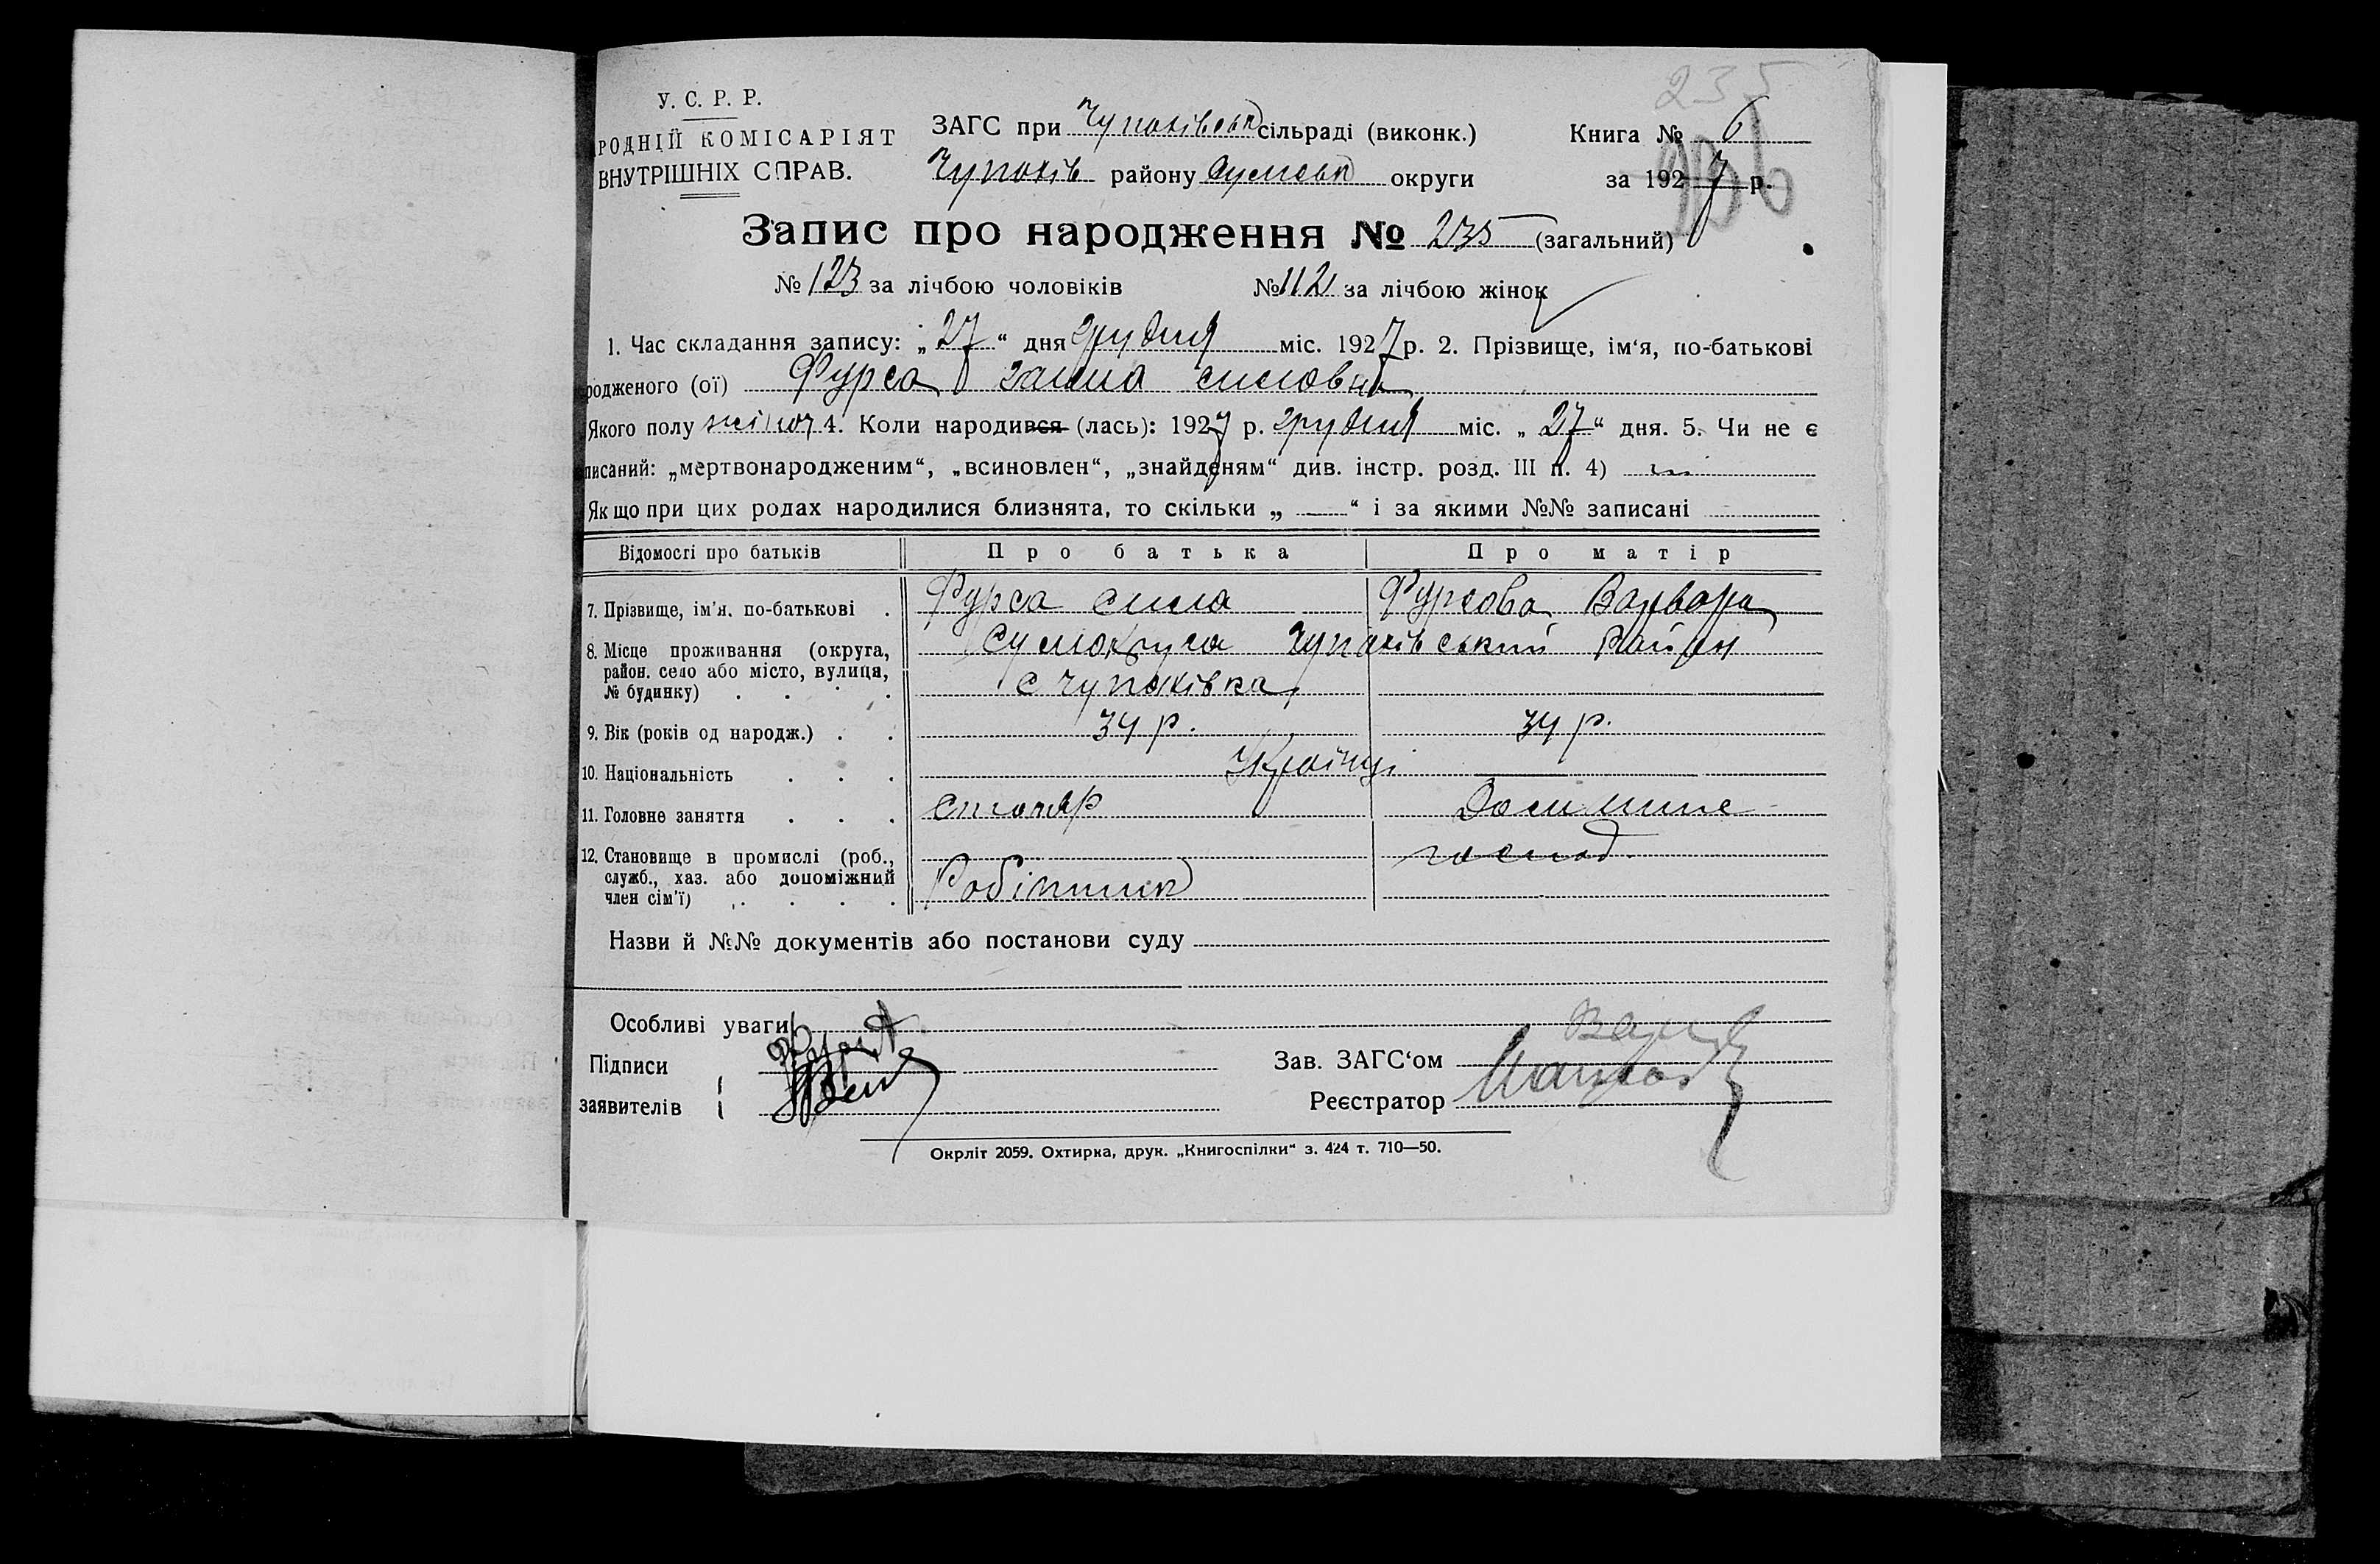 235
У. С. Р. Р.
РОДНІЙ КОМІСАРІЯТ
ВНУТРІШНІХ СПРАВ.
ЗАГС при Чупахівськ сільраді (виконк.)
Чупахів району Сумськ округи
Книга № 6
за 1927 р.
Запис про народження № 235 (загальний)
№ 123 за лічбою чоловіків № 112 за лічбою жінок
1. Час складання запису: „27“ дня грудня міс. 1927 р. 2. Прізвище, ім‘я, по-батькові
родженого (ої) Фурса Ганна Силовна
Якого полу жіноч 4. Коли народився (лась): 1927 р. грудня міс. „27“ дня. 5. Чи не є
писаний: „мертвонародженим“, „всиновлен“, „знайденям“ див. інстр. розд. III п. 4) ні
Якщо при цих родах народилися близнята, то скільки „ — “ і за якими №№ записані
Відомості про батьків Про батька Про матір
7. Прізвище, ім‘я, по-батькові . Фурса Сила Фурсова Варвара
8. Місце проживання (округа, район. село або місто, вулиця, № будинку) . . . . Сумокруга Чупахівський Район
с Чупахівка
9. Вік (років од народж.) . . 34 р. 34 р.
10. Національність . . . Українці
11. Головне заняття . . . столяр Домашнє
господ.
12. Становище в промислі (роб., служб., хаз. або допоміжний член сім'ї) . . . . Робітник
Назви й №№ документів або постанови суду
Особливі уваги
Підписи
заявителів
Зав. ЗАГС‘ом
Реєстратор
Окрліт 2059. Охтирка, друк. „Книгоспілки“ з. 424 т. 710—50.